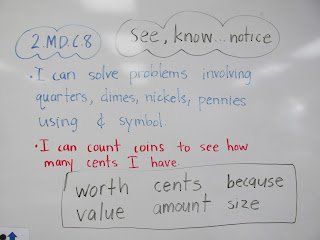 2.MD.C.8
see, know...notice
· I can solve problems involving
quarters, dimes, nickels, pennies
using ¢ symbol.
· I can count coins to see how
many cents I have.
worth cents because
value amount size